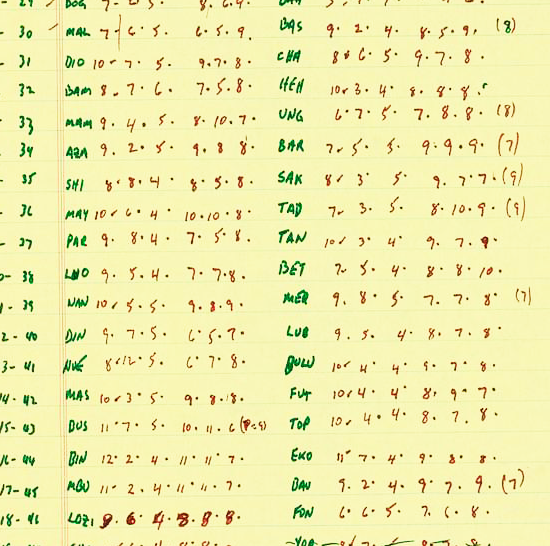 30 MAL 7 - 6 · 5 · 6 · 5 · 9 · BAS 9 · 2 · 4 · 8 · 5 · 9 · (8)
31 DIO 10 - 7 · 5 · 9 · 7 · 8 · CHA 8 · 6 · 5 · 9 · 7 · 8 ·
32 BAM 8 · 7 · 6 · 7 · 5 · 8 · HEH 10 · 3 · 4 · 8 · 8 · 8 ·
33 MAM 9 · 4 · 5 · 8 · 10 · 7 · UNG 6 · 7 · 5 · 7 · 8 · 8 · (8)
34 AZA 9 · 2 · 5 · 9 · 8 8 · BAR 7 · 5 · 5 · 9 · 9 · 9 · (7)
35 SHI 8 · 8 · 4 · 8 · 5 · 8 · SAK 8 · 3 · 5 · 9 · 7 · 7 · (9)
36 MAY 10 · 6 · 4 · 10 · 10 · 8 · TAD 7 · 3 · 5 · 8 · 10 · 9 · (9)
37 PAR 9 · 8 · 4 · 7 · 5 · 8 · TAN 10 · 3 · 4 · 9 · 7 · 9 ·
38 9 · 5 · 4 · 7 · 7 · 8 · BET 7 · 5 · 4 · 8 · 8 · 10 ·
39 NAN 10 · 5 · 5 · 9 · 8 · 9 · MER 9 · 8 · 5 · 7 · 7 · 8 · (7)
40 DIN 9 · 7 · 5 · 6 · 5 · 7 · LUB 9 · 5 · 4 · 8 · 7 · 8 ·
41 8 · 12 · 5 · 6 · 7 · 8 · BULU 10 · 4 · 4 · 9 · 7 · 8 ·
42 MAS 10 · 3 · 5 · 9 · 8 · 8 · FUT 10 · 4 · 4 · 8 · 9 · 7 ·
43 DUS 11 · 7 · 5 · 10 · 11 · 6 TOP 10 · 4 · 4 · 8 · 7 · 8 ·
44 BIN 12 · 2 · 4 · 11 · 11 · 7 · EKO 11 · 7 · 4 · 9 · 8 · 8 ·
45 MBU 11 · 2 · 4 · 11 · 11 · 7 · 9 · 2 · 4 · 9 · 7 · 9 · (7)
46 LOZI 9 · 6 · 4 · 8 · 8 · FON 6 · 6 · 5 · 7 · 6 · 8 ·